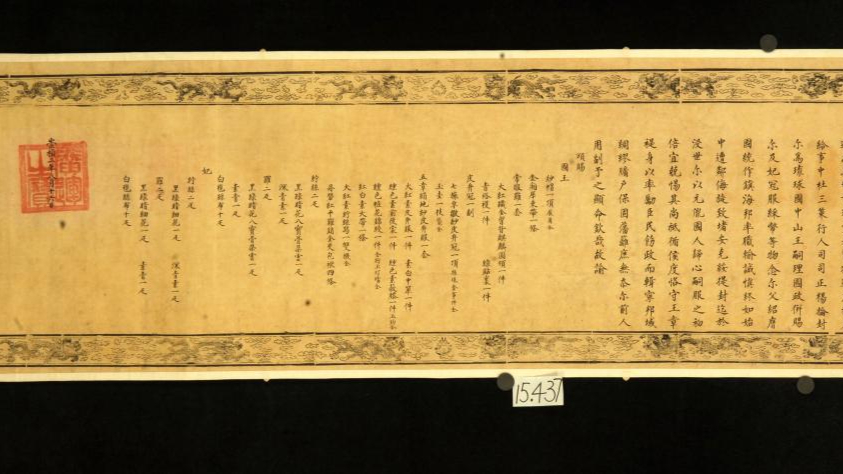 給事中杜三策行人司司正楊掄封
尔為琉球國中山王嗣理國政併賜
尔及妃冠服綵幣等物念尔父紹膺
國統作鎮海邦率職輸誠慎終如始
中遭鄰侮旋致堵安克荷提封迄於
沒世尔以元冢國人歸心嗣服之初
倍宜兢惕其尚祗循侯度恪守王章
褆身以率勵臣民飭政而輯寧邦域
綢繆牖戶保固藩籬庶無忝尔前人
用副予之顯命欽哉故諭
頒賜
國王
紗帽一頂展角全
金廂犀束帶一條
常服羅一套
大紅織金胷背麒麟圓領一件
青褡𧞤一件 綠貼裏一件
皮弁冠一副
七旒皂皺紗皮弁冠一頂旒珠金事件全
玉圭一枝袋全
五章絹地紗皮弁服一套
大紅素皮弁服一件 素白中單一件
纁色素前後裳一件 纁色素蔽膝一件玉鈎全
纁色粧花錦綬一件金鈎玉玎璫全
紅白素大帶一條
大紅素紵絲舄一雙襪全
丹礬紅平羅銷金夾包袱四條
紵絲二疋
黑綠暗花八寶骨朵雲一疋
深青素一疋
羅二疋
黑綠暗花八寶骨朵雲一疋
青素一疋
白氁絲布十疋
妃
紵絲二疋
黑綠暗細花一疋 深青素一疋
羅二疋
黑綠暗細花一疋 青素一疋
白氁絲布十疋
崇禎二年八月十六日
15.437